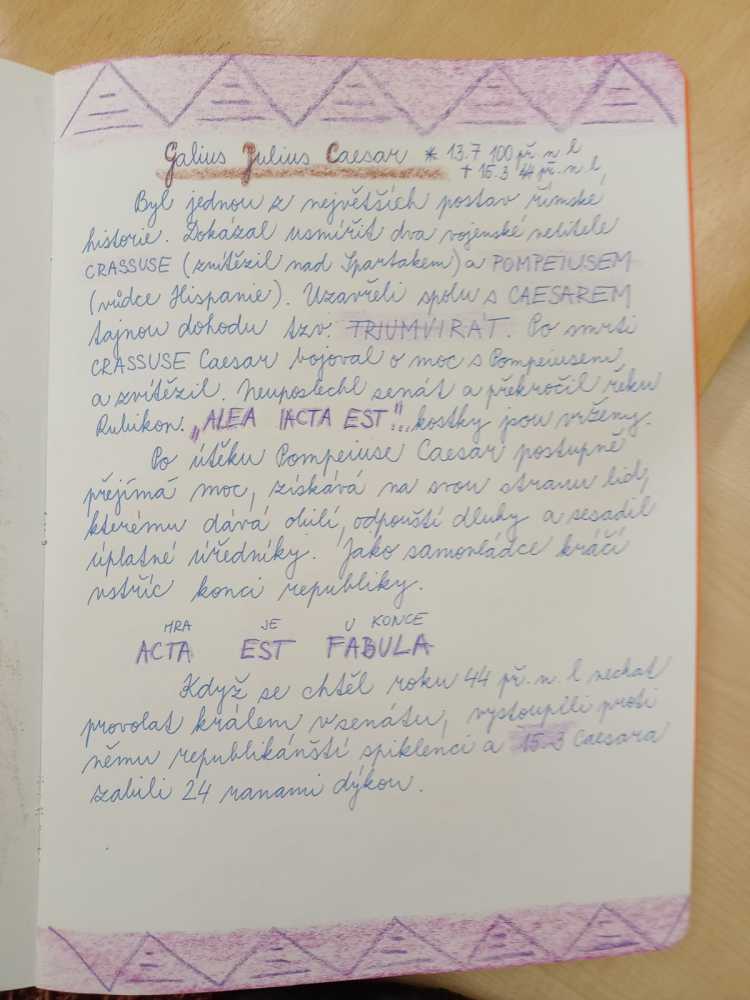 Galius Julius Caesar * 13.7 100 př. n. l
† 15.3 44 př. n. l,
Byl jednou z největších postav římské
historie. Dokázal usmířit dva vojenské velitele
CRASSUSE (zvítězil nad Spartakem) a POMPEIUSEM
(vůdce Hispanie). Uzavřeli spolu s CAESAREM
tajnou dohodu tzv. TRIUMVIRÁT. Po smrti
CRASSUSE Caesar bojoval o moc s Pompeiusem
a zvítězil. Neuposlechl senát a překročil řeku
Rubikon. „ALEA IACTA EST"... kostky jsou vrženy.
Po útěku Pompeiuse Caesar postupně
přejímá moc, získává na svou stranu lid,
kterému dává obilí, odpouští dluhy a sesadil
úplatné úředníky. Jako samovládce kráčí
vstříc konci republiky.
HRA JE U KONCE
ACTA EST FABULA
Když se chtěl roku 44 př. n. l nechat
provolat králem v senátu, vystoupili proti
němu republikánští spiklenci a 15.3 Caesara
zabili 24 ranami dýkou.